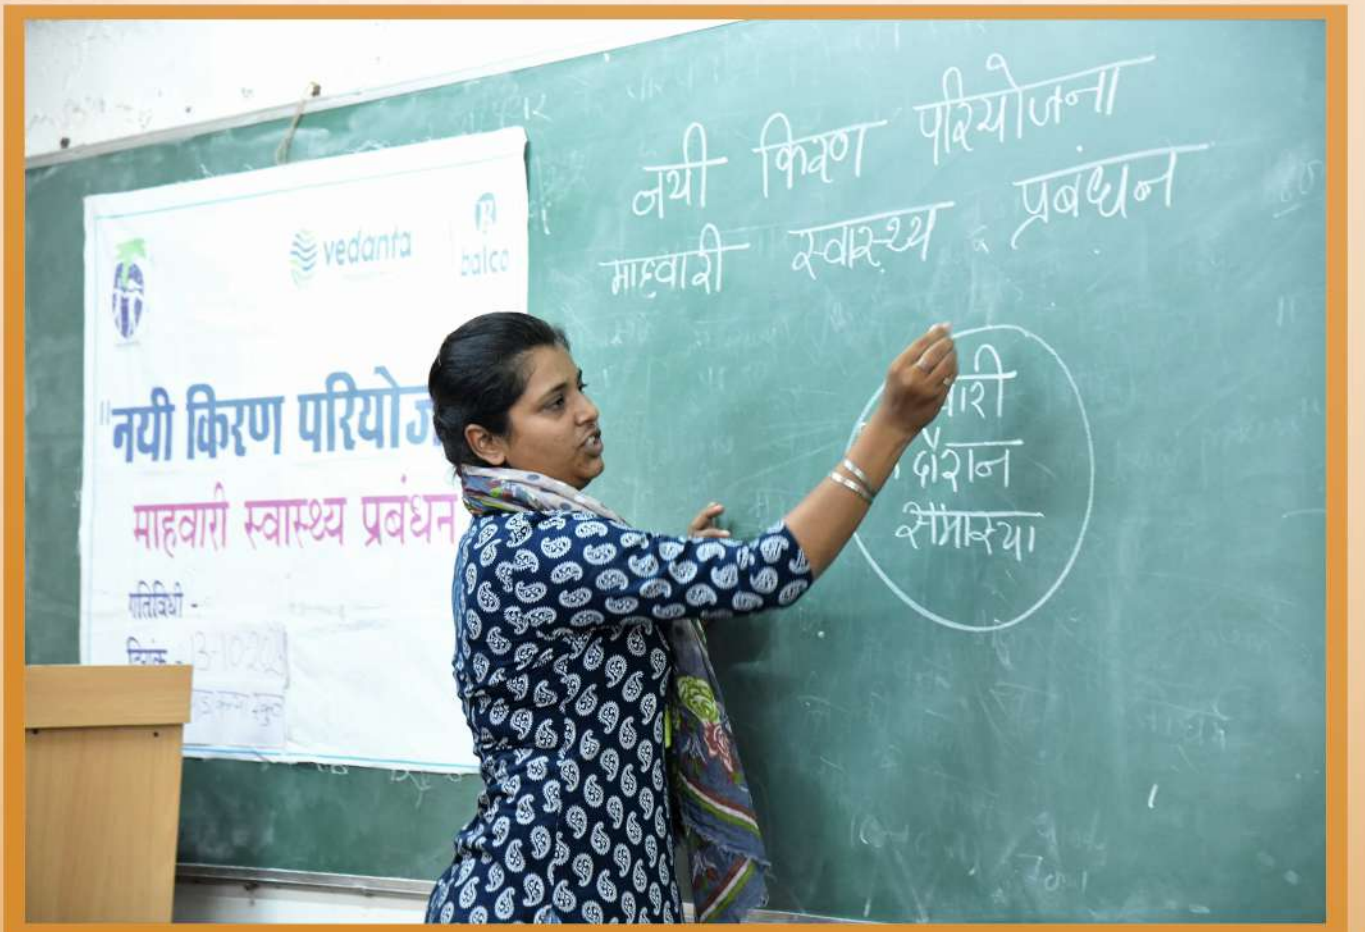 vedanta
balco
"नयी किरण परियोज
माहवारी स्वास्थ्य प्रबंधन
गतिविधी -
दिनांक - 13-10-2023
नयी किरण परियोजना
माहवारी स्वास्थ्य प्रबंधन
वारी
दौरान
समास्या